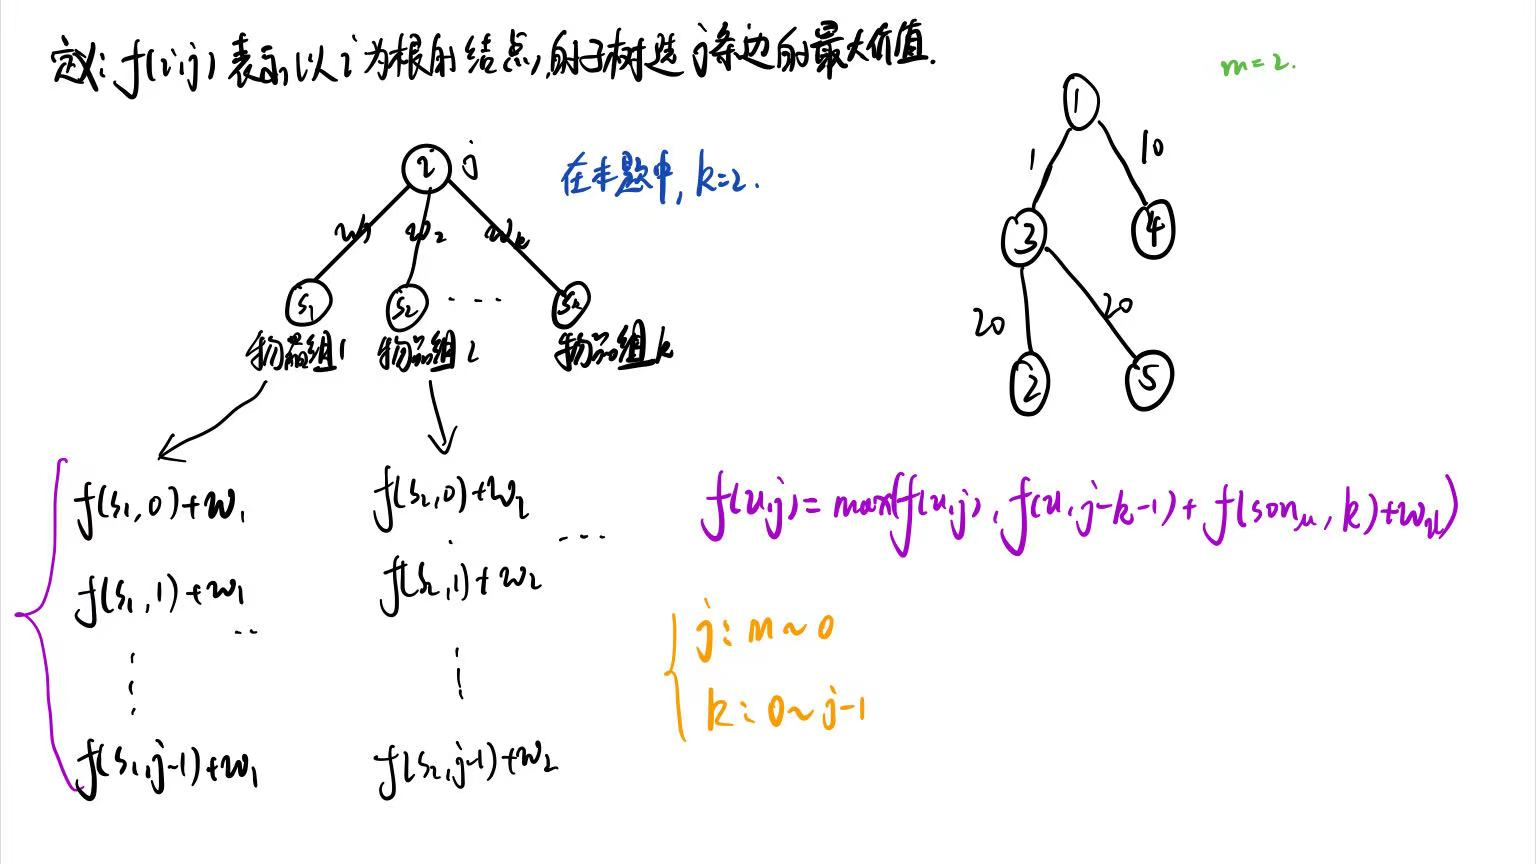 定义: f(i,j) 表示以i为根的结点,的子树选j条边的最大价值.
m=2.
i j
在本题中, k=2.
w1 w2 wk
s1 s2 ... sk
物品组1 物品组2 物品组k
f(s1,0)+w1 f(s2,0)+w2 ...
f(s1,1)+w1 f(s2,1)+w2
f(s1,j-1)+w1 f(s2,j-1)+w2
1
1 10
3 4
20 20
2 5
f(u,j)=max(f(u,j), f(u,j-k-1)+f(son_u,k)+w_u)
j: m~0
k: 0~j-1